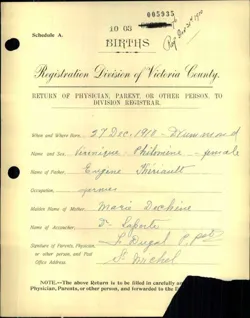 005935
Schedule A.
1003
BIRTHS
Registration Division of Victoria County.
RETURN OF PHYSICIAN, PARENT, OR OTHER PERSON, TO
DIVISION REGISTRAR.
When and Where Born, 27 Dec. 1918 - Drummond
Name and Sex, Veronique Philomène - female
Name of Father, Eugène Theriault
Occupation, farmer
Maiden Name of Mother, Marie
Name of Accoucher, Laporte
Signature of Parents, Physician,
or other person, and Post
Office Address, L. Dugal
St Michel
NOTE.—The above Return is to be filled in carefully and
Physician, Parents, or other person, and forwarded to the